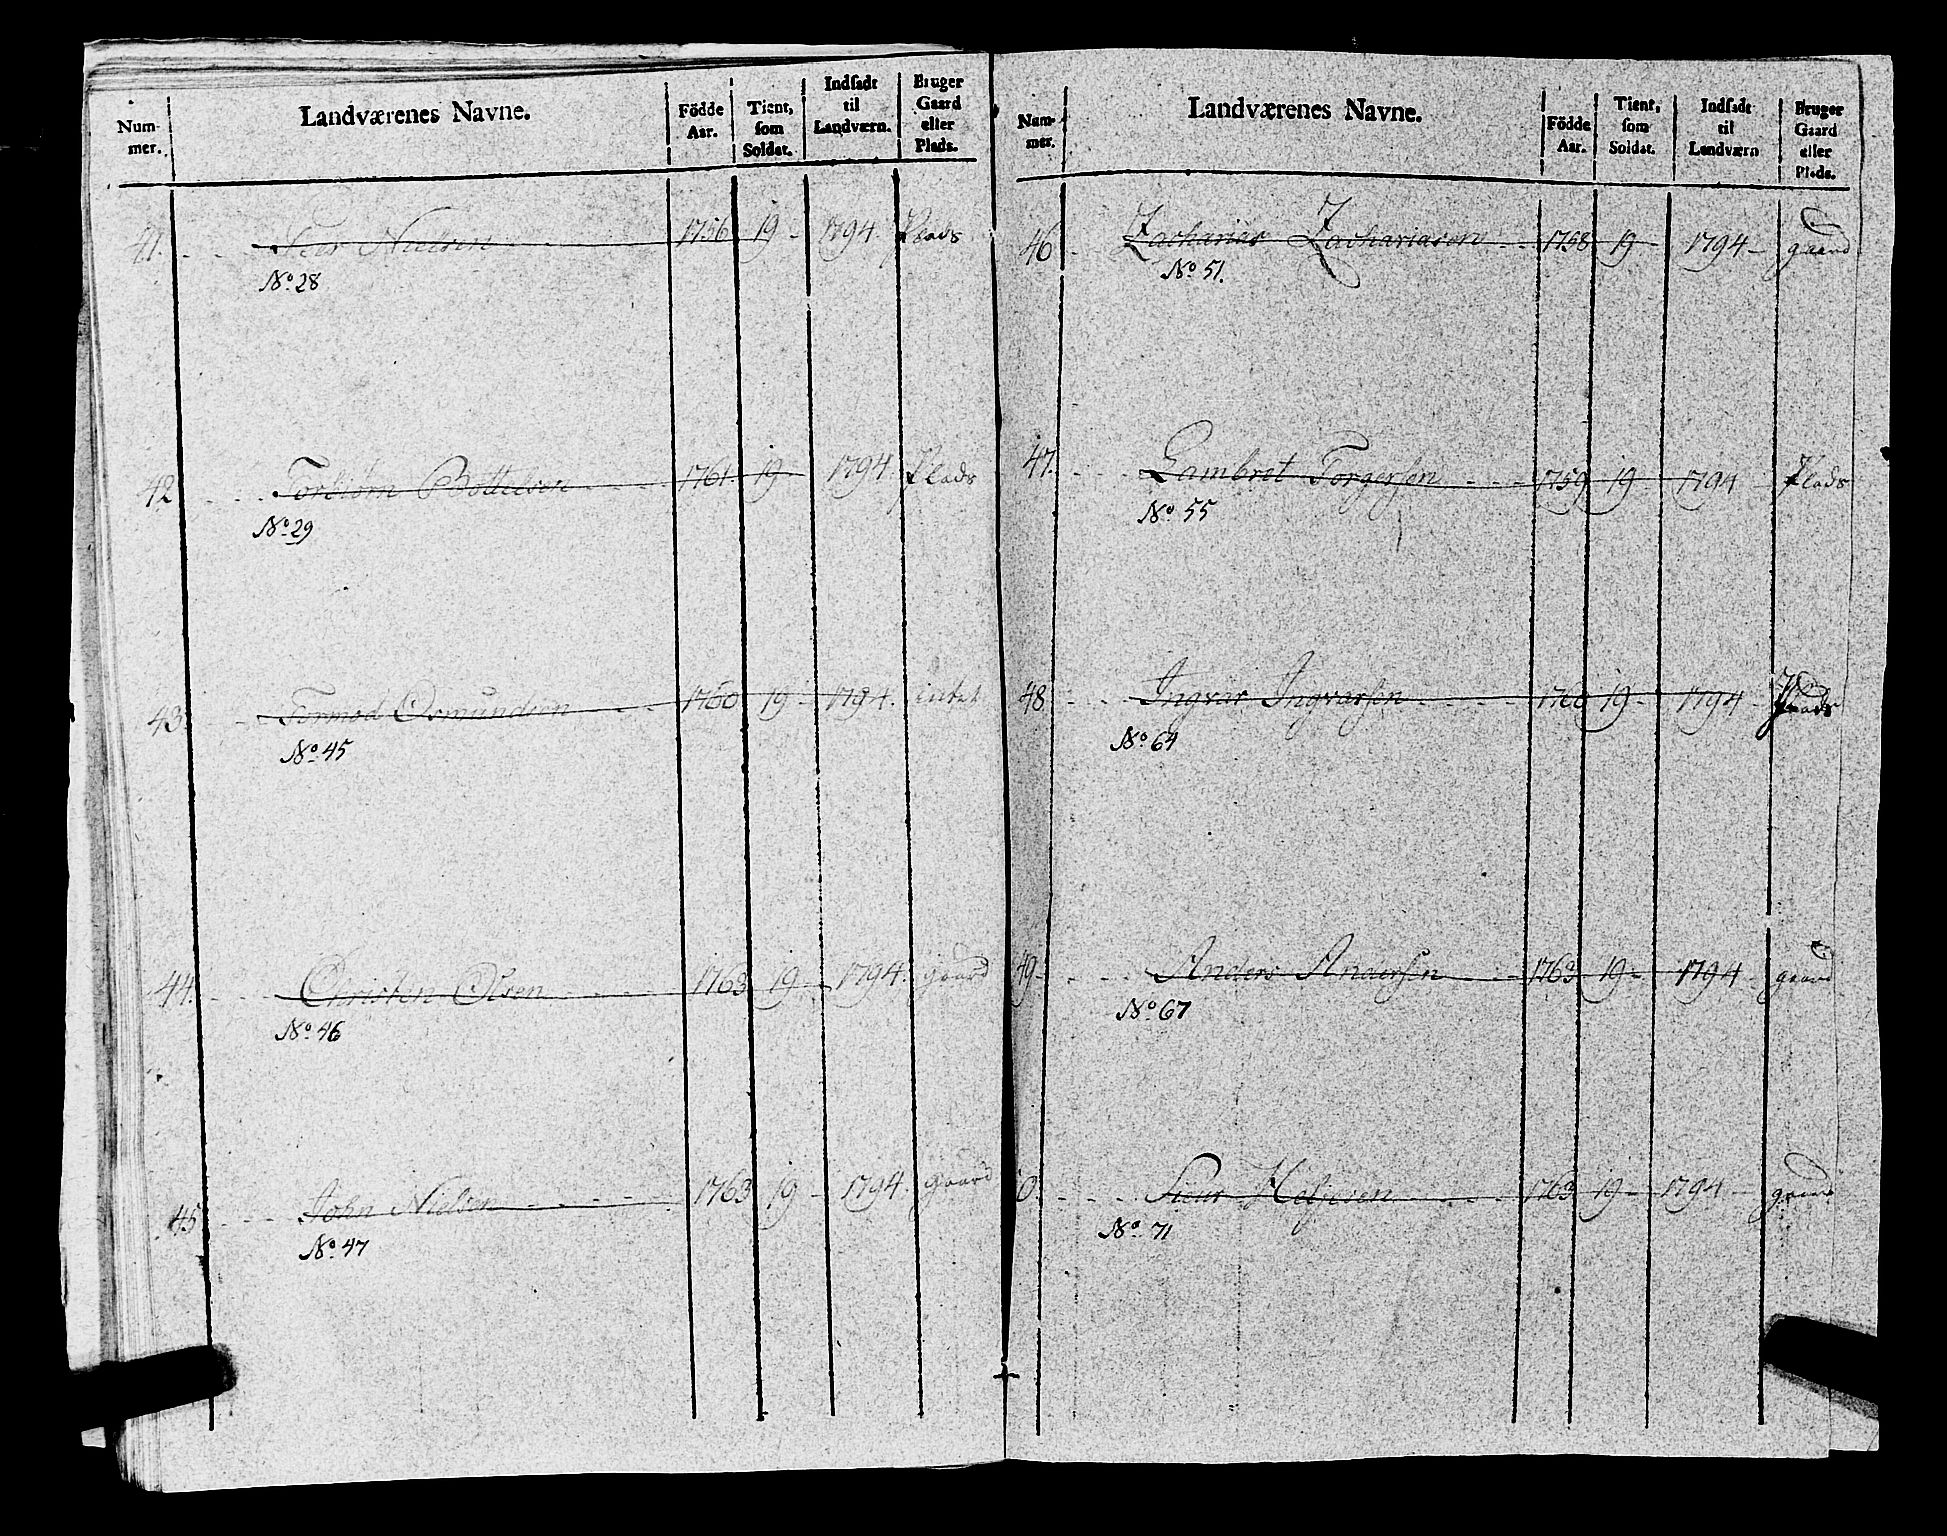 Num-
mer.
Landværenes Navne.
Födde
Aar.
Tient,
som
Soldat.
Indsadt
til
Landværn.
Bruger
Gaard
eller
Plads.
41. Nielsen 1756 19 - 1794. Plads
No. 28
42 Torbiørn 1761. 19 1794. Plads
No. 29
43. Tormod Osmundsen 1760 19 - 1794. intet
No. 45
44. Christen Olsen 1763 19 1794. gaard
No. 46
45 John Nielsen 1763 19 - 1794. gaard
No. 47
Num-
mer.
Landværenes Navne.
Födde
Aar.
Tient,
som
Soldat.
Indsadt
til
Landværn
Bruger
Gaard
eller
Plads.
46 Zacharias Zachariasen 1758 19 - 1794 - gaard
No. 51.
47. Lambret Torgersen 1759 19 1794 Plads
No. 55
48 Ingvar Ingvarsen 1760 19 - 1794 - Plads
No. 64
49 - Anders Andersen 1763 19 - 1794 - gaard
No. 67
0. Siur 1763 19 - 1794 - gaard
No. 71